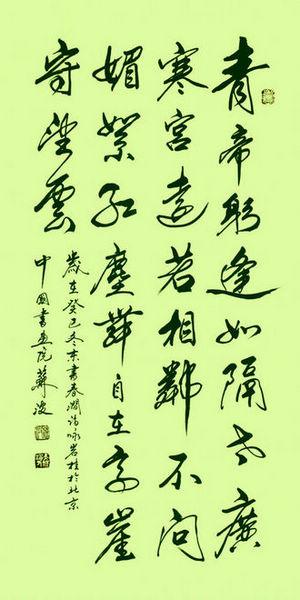 青帝躬逢如隔世廣
寒宮遠若相鄰不問
媚絮紅塵舞自在高崖
守望雲
歲在癸巳冬末書春澗詩咏岩桂於北京
中國書畫院蘇